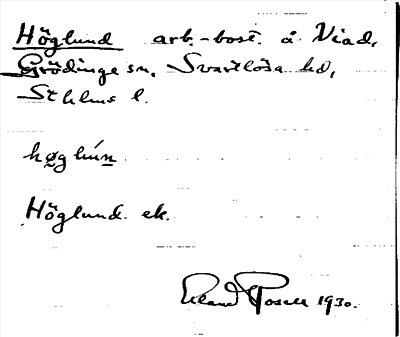 Höglund arb.-bost. å Viad,
Grödinge sn, Svartlösa hd,
Sthlms l.
høglún
Höglund. ek.
Erland Rosell 1930.